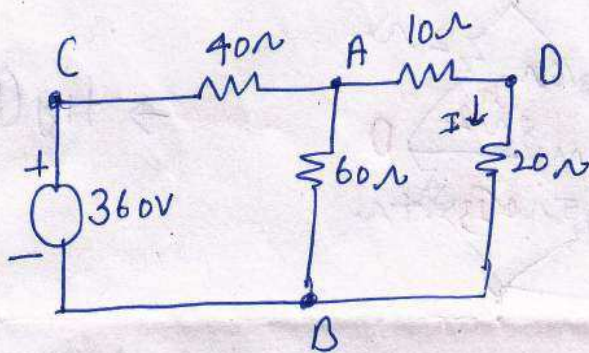 C 40Ω A 10Ω D
I ↓
+ 360V 60Ω 20Ω
−
B